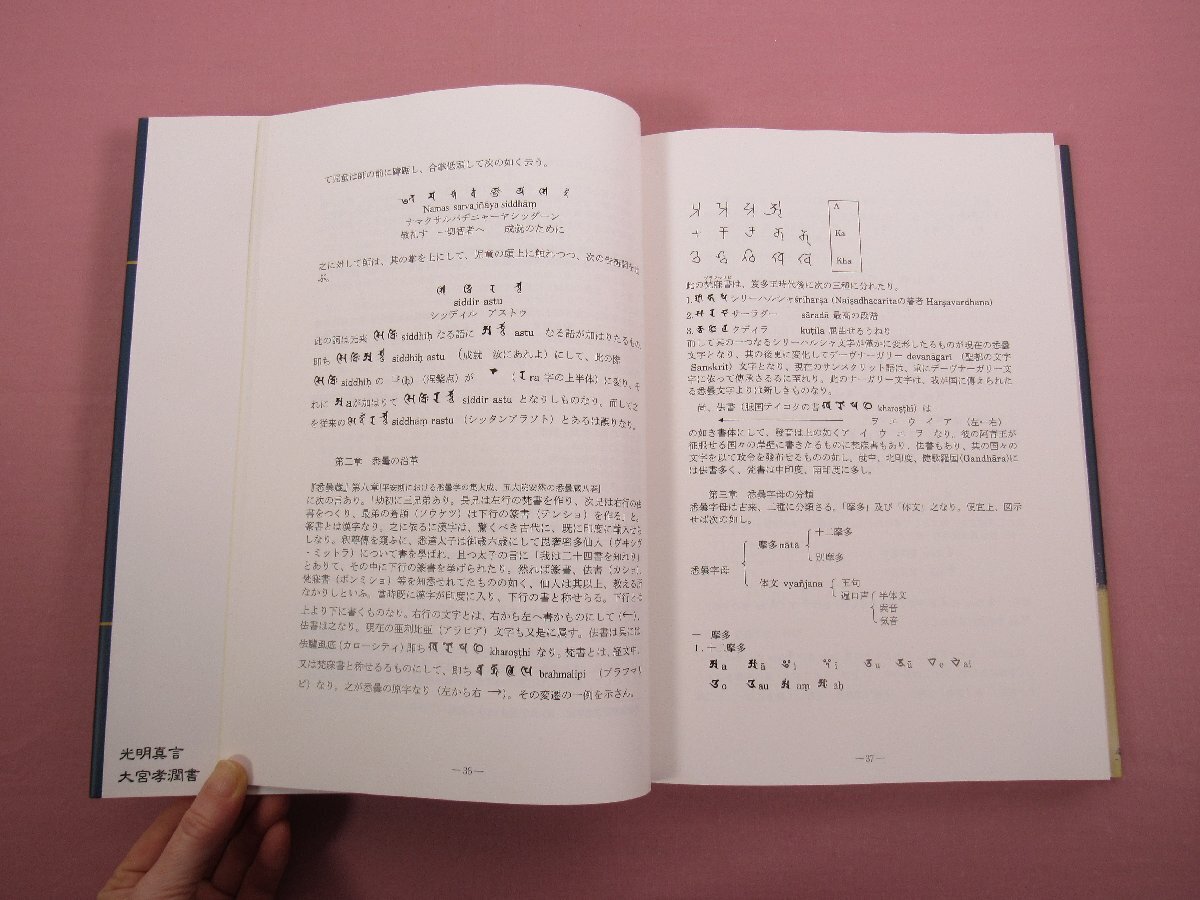 て児童は師の前に踞し、合掌低頭して次の如く云う。
Namas sarvajñāya siddhāṃ
ナマクサルバヂニャーヤシッダーン
敬礼す 一切智者へ 成就のために
之に対して師は、其の掌を上にして、児童の頭上に触れつつ、次の
ぶ。
siddir astu
シッディル アストゥ
此の詞は元来 siddhiḥ なる語に astu なる語が加はりたるもの
即ち siddhiḥ astu (成就 汝にあれよ)にして、此の際
siddhiḥ の (ḥ)(涅槃点)が (ra 字の上半体)に変り、そ
れに aが加はりて siddhir astu となりしものなり、而して之
を従来の siddhaṃ rastu (シッタンアラソト)とあるは誤りなり。
第二章 悉曇の沿革
『悉曇蔵』第八章「平安朝における悉曇学の集大成、五大院安然の悉曇蔵八巻」
に次の言あり。「劫初に三兄弟あり。長兄は左行の梵書を作り、次兄は右行の
書をつくり、最弟の蒼頡(ソウケツ)は下行の篆書(テンショ)を作る」と。
篆書とは漢字なり、之に依るに漢字は、驚くべき古代に、既に印度に輸入せ
しなり。釈尊傳を窺ふに、悉達太子は御歳六歳にして毘奢密多仙人(ヴィシヴ
・ミットラ)について書を學ばれ、且つ太子の言に「我は二十四書を知れり」
とありて、その中に下行の篆書を挙げられたり。然れば篆書、佉書(カショ)、
梵寐書(ボンミショ)等を知悉せられてたものの如く、仙人は其以上、教える
なかりしといふ。當時既に漢字が印度に入り、下行の書と称せらる。下行とは
上より下に書くものなり。右行の文字とは、右から左へ書かものにして(←)、
佉書は之なり。現在の亜刻比亜(アラビア)文字も又是に属す。佉書は具には
佉驢虱底(カローシティ)即ち kharoṣṭhi なり。梵書とは、経文中、
又は梵寐書と称せるるものにして、即ち brahmalipi (ブラフマリ
ピ)なり。之が悉曇の原字なり(左から右 →)。その変遷の一例を示さん。
—36—
光明真言
大宮孝潤書
A
Ka
Kha
此の梵寐書は、笈多王時代後に次の三種に分れたり。
1. シリーハルシャśriharṣa (Naiṣadhacaritaの著者 Harṣavardhana)
2. サーラダー śāradā 最高の段階
3. クディラ kuṭila 屈曲せるうねり
而して其の一つなるシリーハルシャ文字が僅かに変形したるものが現在の悉曇
文字となり、其の後更に変化してデーヴナーガリー devanāgari (聖都の文字
Sanskrit) 文字となり、現在のサンスクリット語は、常にデーヴナーガリー文
字に依って傳承さるるに至れり。此のナーガリー文字は、我が国に傳えられた
る悉曇文字よりは新しきものなり。
尚、佉書 kharoṣṭhi) は
← ヲ エ ウ イ ア (左・右)
の如き書体にして、發音は上の如くア イ ウ エ ヲ なり。彼の阿育王が
征服せる国々の岸壁に書きたるものに梵寐書もあり、佉書もあり、其の国々の
文字を以て政令を發布せるものの如し。就中、北印度、健駄羅国(Gandhāra)に
は佉書多く、梵書は中印度、南印度に多し。
第三章 悉曇字母の分類
悉曇字母は古来、二種に分類さる。「摩多」及び「体文」となり。便宜上、図示
せば次の如し。
悉曇字母
摩多 mātā
十二摩多
別摩多
体文 vyañjana
五句
遍口声
半体文
一 摩多
1. 十二摩多
a ā i ī u ū e ai
o au aṃ aḥ
—37—